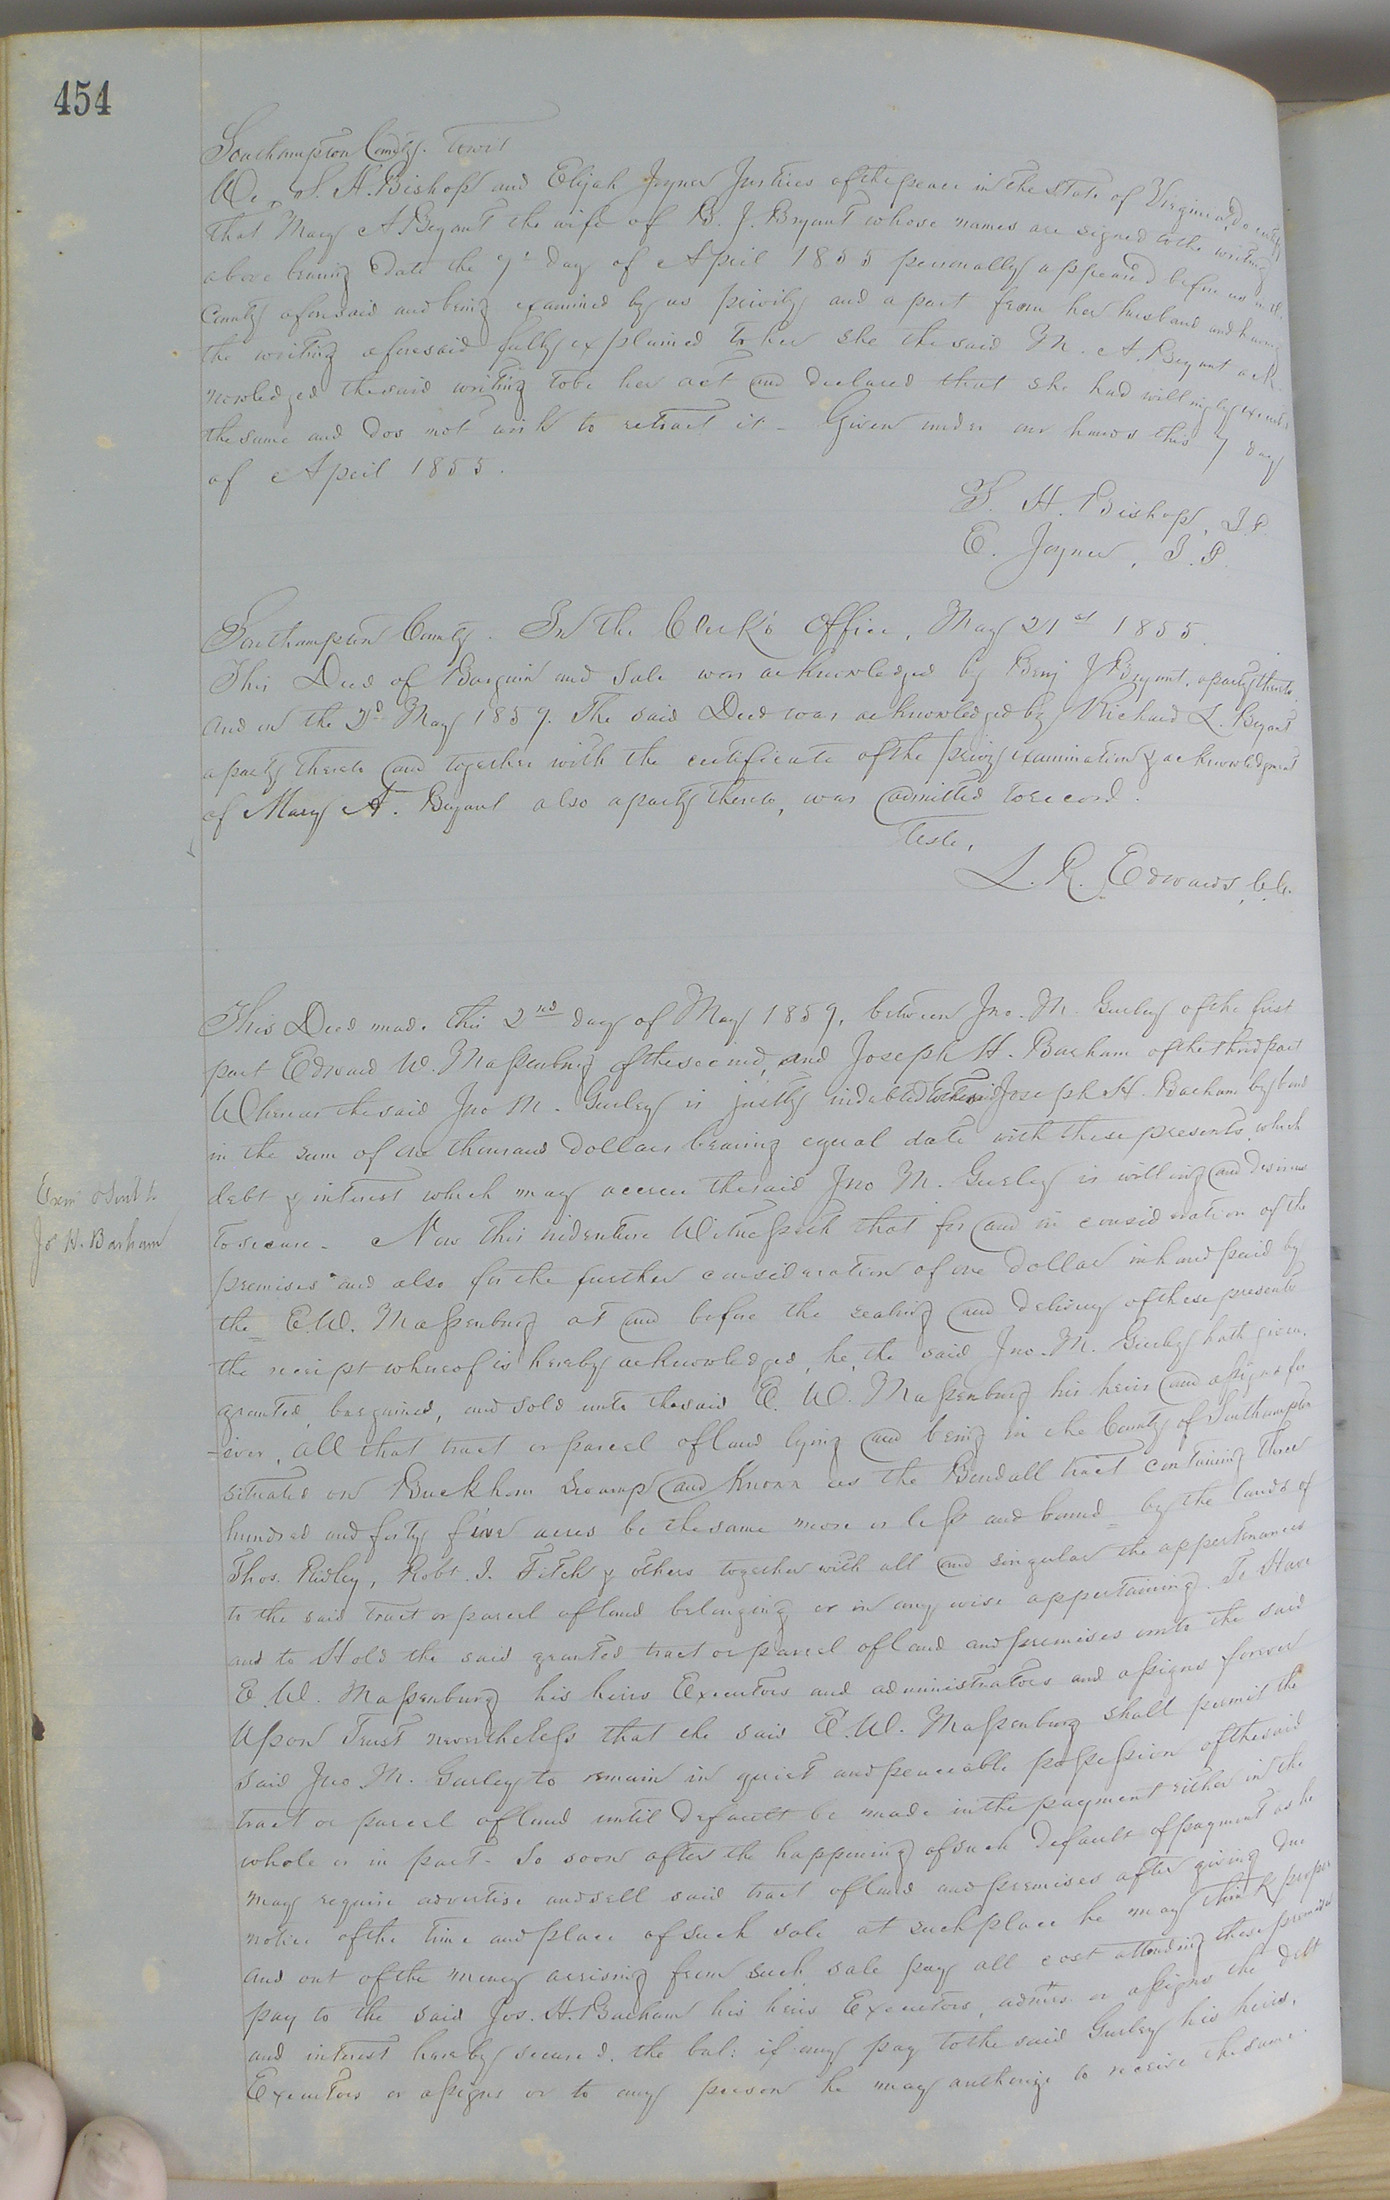 454
Southampton County. towit
We, S. H. Bishop and Elijah Joyner Justices of the peace in the State of Virginia, do certify
that Mary A Bryant the wife of B. J. Bryant whose names are signed to the writing
above bearing date the 7th day of April 1855 personally appeared before us in the
County aforesaid and being examined by us privily and apart from her husband and having
the writing aforesaid fully explained to her she the said M. A. Bryant ack-
nowledged the said writing to be her act and declared that she had willingly executed
the same and dos not wish to retract it - Given under our hands this 7 day
of April 1855.
S. H. Bishop, J.P.
E. Joyner, J.P.
Southampton County. In the Clerk's Office, May 21st 1855.
This Deed of Bargain and Sale was acknowledged by Benj J Bryant, a party thereto
and on the 2d May 1859. The said Deed was acknowledged by Richard L. Bryant
a party thereto and together with the certificate of the privy examination & acknowledgment
of Mary A. Bryant also a party thereto, was admitted to record.
Teste,
L. R. Edwards, C.C.
This Deed made this 2nd day of May 1859, between Jno. M. Gurley of the first
part Edward W. Massenburg of the second, and Joseph H. Barham of the third part
Whereas the said Jno M. Gurley is justly indebted to the said Joseph H. Barham by bond
in the sum of one thousand dollars bearing equal date with these presents which
debt & interest which may accrue the said Jno M. Gurley is willing and desirous
to secure - Now this indenture Witnesseth that for and in consideration of the
premises and also for the further consideration of one dollar in hand paid by
the E.W. Massenburg at and before the sealing and delivery of these presents
the receipt whereof is hereby acknowledged, he, the said Jno. M. Gurley hath given,
granted, bargained, and sold unto the said E. W. Massenburg his heirs and assigns for
-ever, all that tract or parcel of land lying and being in the County of Southampton
situated on Buckhorn Swamp and known as the Bendall tract containing three
hundred and forty five acres be the same more or less and bound by the lands of
Thos. Ridley, Robt. J. Fitch & others together with all and singular the appertenances
to the said tract or parcel of land belonging or in any wise appertaining. To Have
and to Hold the said granted tract or parcel of land and premises unto the said
E. W. Massenburg his heirs Executors and administrators and assigns forever
Upon Trust nevertheless that the said E. W. Massenburg shall permit the
said Jno M. Gurley to remain in quiet and peaceable possession of the said
tract or parcel of land until default be made in the payment either in the
whole or in part - So soon after the happening of such default of payment as he
may require advertise and sell said tract of land and premises after giving due
notice of the time and place of such sale at such place he may think proper
and out of the money arrising from such sale pay all cost attending these premises
pay to the said Jos. H. Barham his heirs Executors, admrs. or assigns the debt
and interest hereby secured. the bal: if any pay to the said Gurley his heirs,
Executors or assigns or to any person he may authorize to receive the same.
Exmd
Jos H. Barham